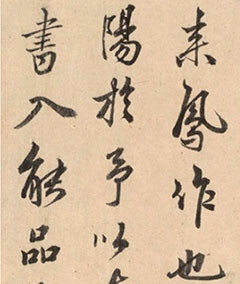 来鳳作也
陽於予以
書入能品